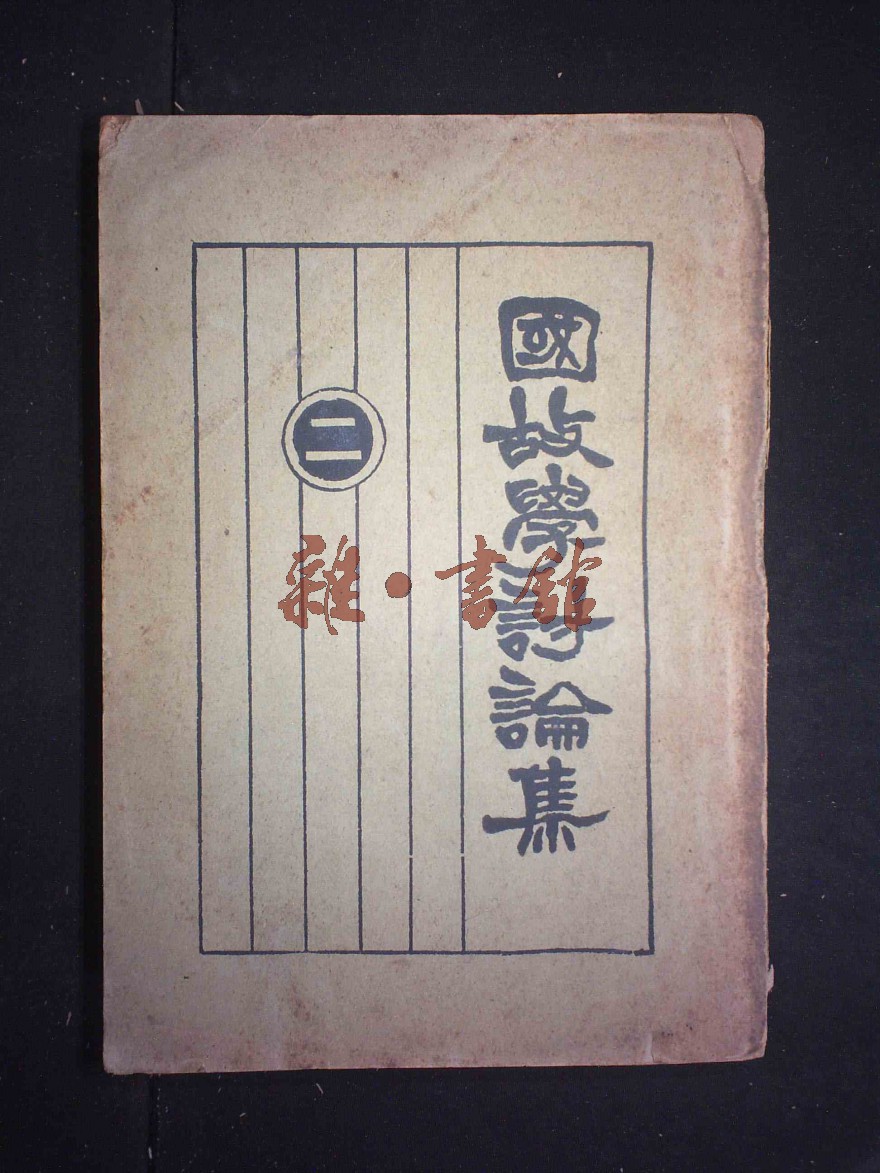 國故學討論集
二
雜·書館